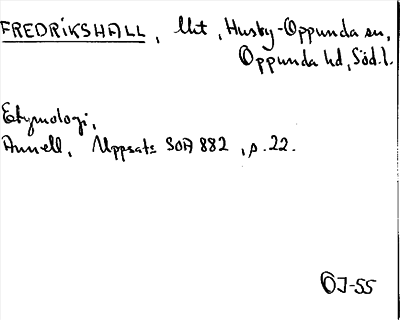 FREDRIKSHALL, Utt, Husby-Oppunda sn,
Oppunda hd, Söd.l.
Etymologi,
Annell, Uppsats SOA 882, p. 22.
OJ-55